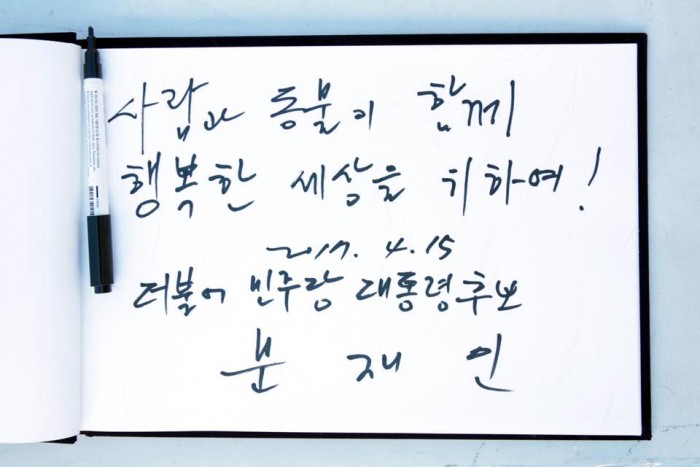 사람과 동물이 함께
행복한 세상을 위하여!
2017. 4. 15
더불어 민주당 대통령후보
문 재 인